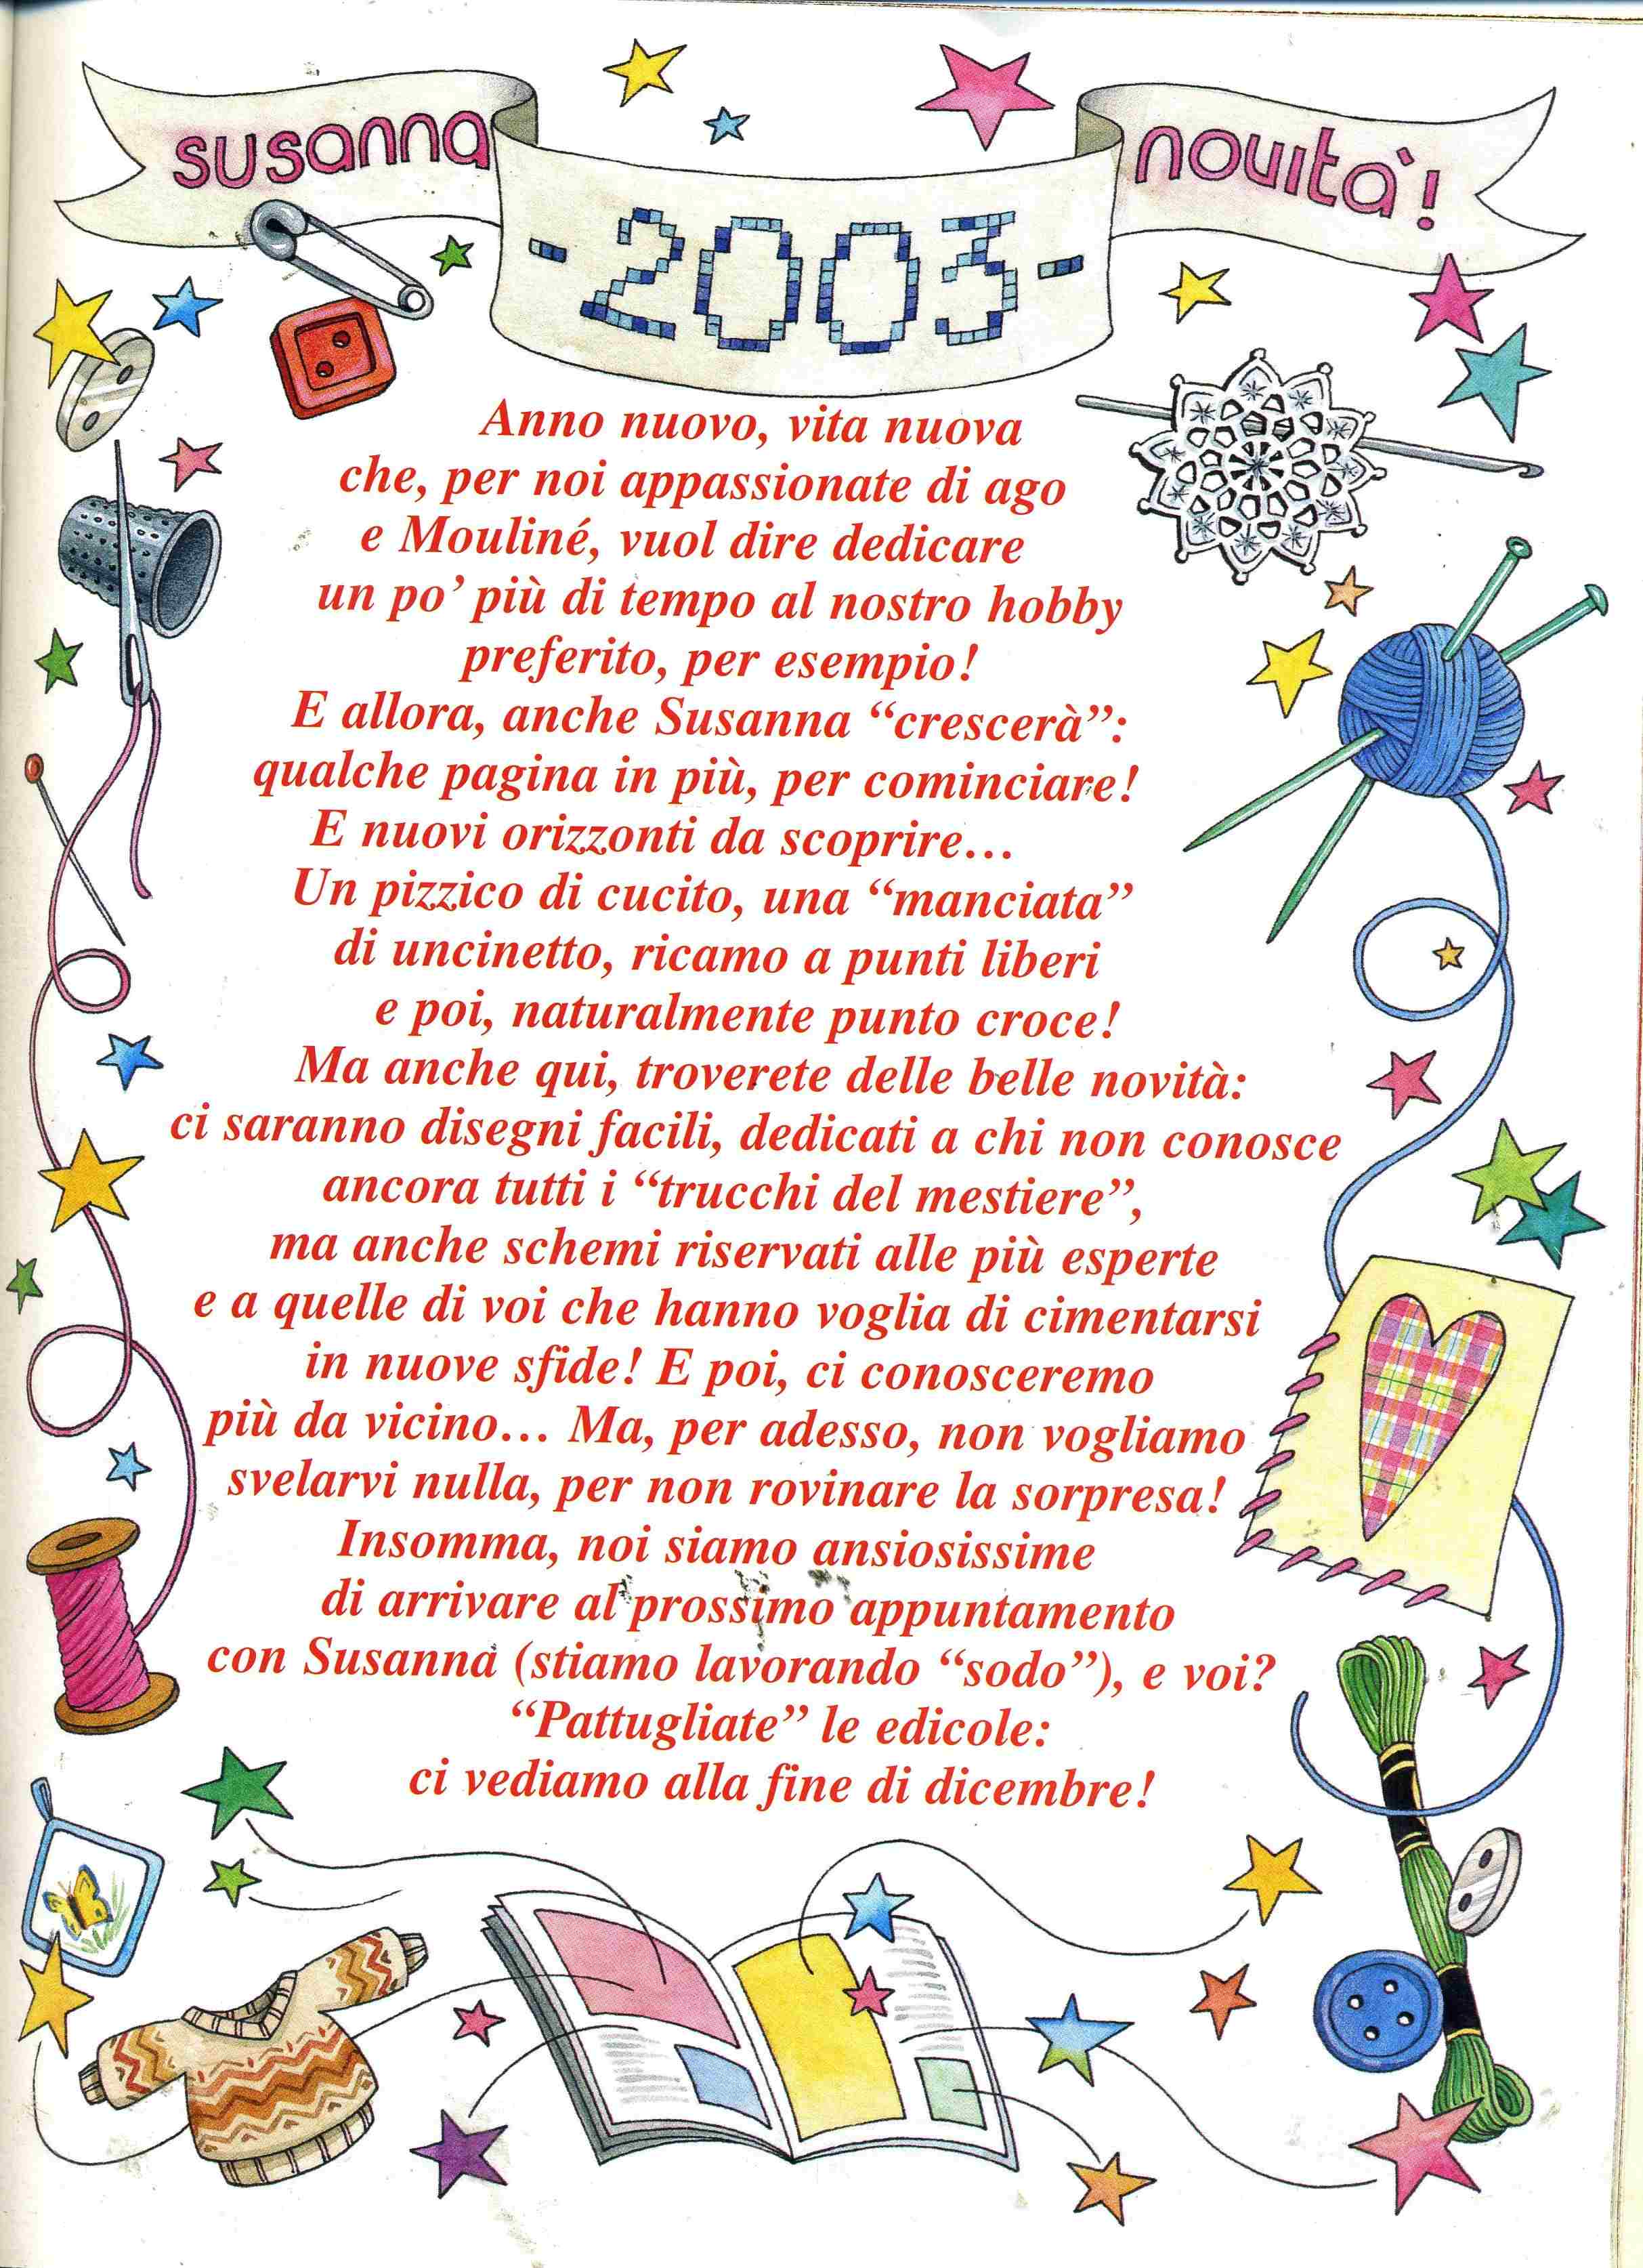 susanna
novità!
-2003-
Anno nuovo, vita nuova
che, per noi appassionate di ago
e Mouliné, vuol dire dedicare
un po’ più di tempo al nostro hobby
preferito, per esempio!
E allora, anche Susanna “crescerà”:
qualche pagina in più, per cominciare!
E nuovi orizzonti da scoprire…
Un pizzico di cucito, una “manciata”
di uncinetto, ricamo a punti liberi
e poi, naturalmente punto croce!
Ma anche qui, troverete delle belle novità:
ci saranno disegni facili, dedicati a chi non conosce
ancora tutti i “trucchi del mestiere”,
ma anche schemi riservati alle più esperte
e a quelle di voi che hanno voglia di cimentarsi
in nuove sfide! E poi, ci conosceremo
più da vicino… Ma, per adesso, non vogliamo
svelarvi nulla, per non rovinare la sorpresa!
Insomma, noi siamo ansiosissime
di arrivare al prossimo appuntamento
con Susanna (stiamo lavorando “sodo”), e voi?
“Pattugliate” le edicole:
ci vediamo alla fine di dicembre!